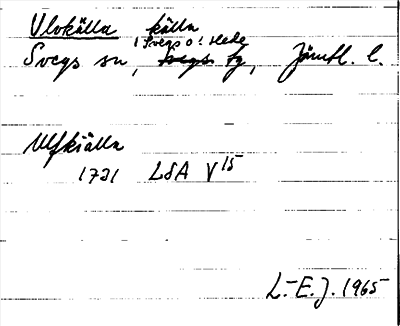 Ulvkälla källa
i Svegs o: Hede
Svegs sn, Svegs tg, Jämtl. l.
Ulfkiälla
1721 LSA V 15
L-E.J. 1965